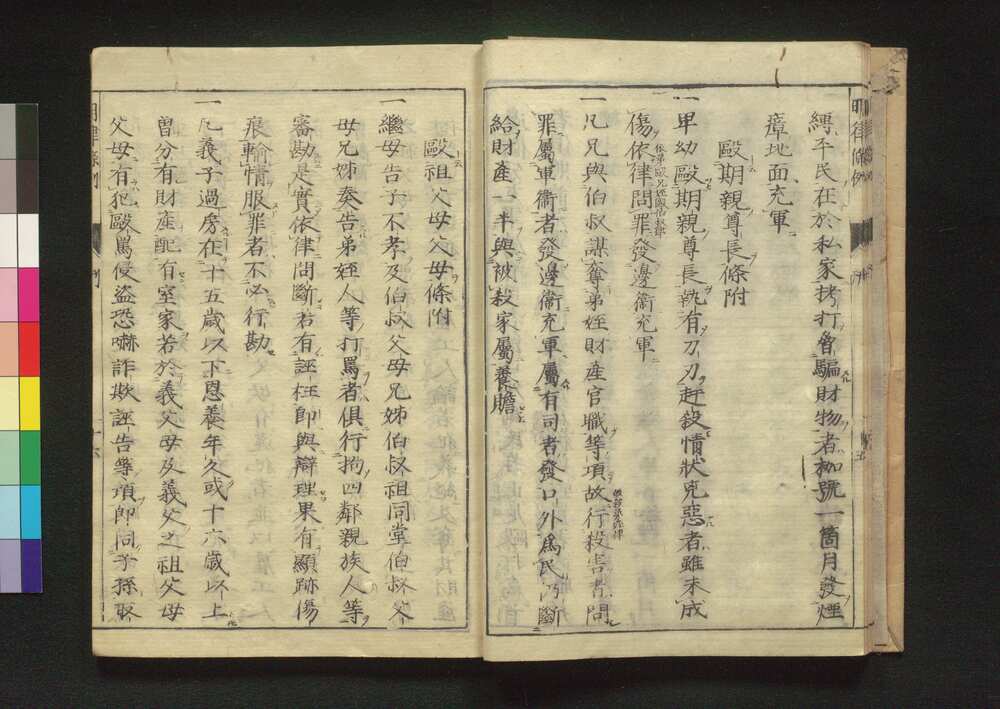 縛平民在於私家拷打脅騙財物者枷號一箇月發煙
瘴地面充軍
毆期親尊長條附
一卑幼毆期親尊長執有刀刃赶殺情狀兇惡者雖未成
傷依律問罪發邊衛充軍
一兄與伯叔謀奪弟姪財產官職等項故行殺害者問
罪屬軍衛者發邊衛充軍屬有司者發口外爲民仍斷
給財產一半與被殺家屬養贍
毆祖父母父母條附
一繼母告子不孝及伯叔父母兄姊伯叔祖同堂伯叔父
母兄姊奏告弟姪人等打罵者俱行拘四鄰親族人等
審勘是實依律問斷若有誣枉即與辯理果有顯跡傷
痕輸情服罪者不必行勘
一凡義子過房在十五歲以下恩養年久或十六歲以上
曽分有財產配有室家若於義父母及義父之祖父母
父母有犯毆罵侵盜恐嚇詐欺誣告等項即同子孫取
明律條例